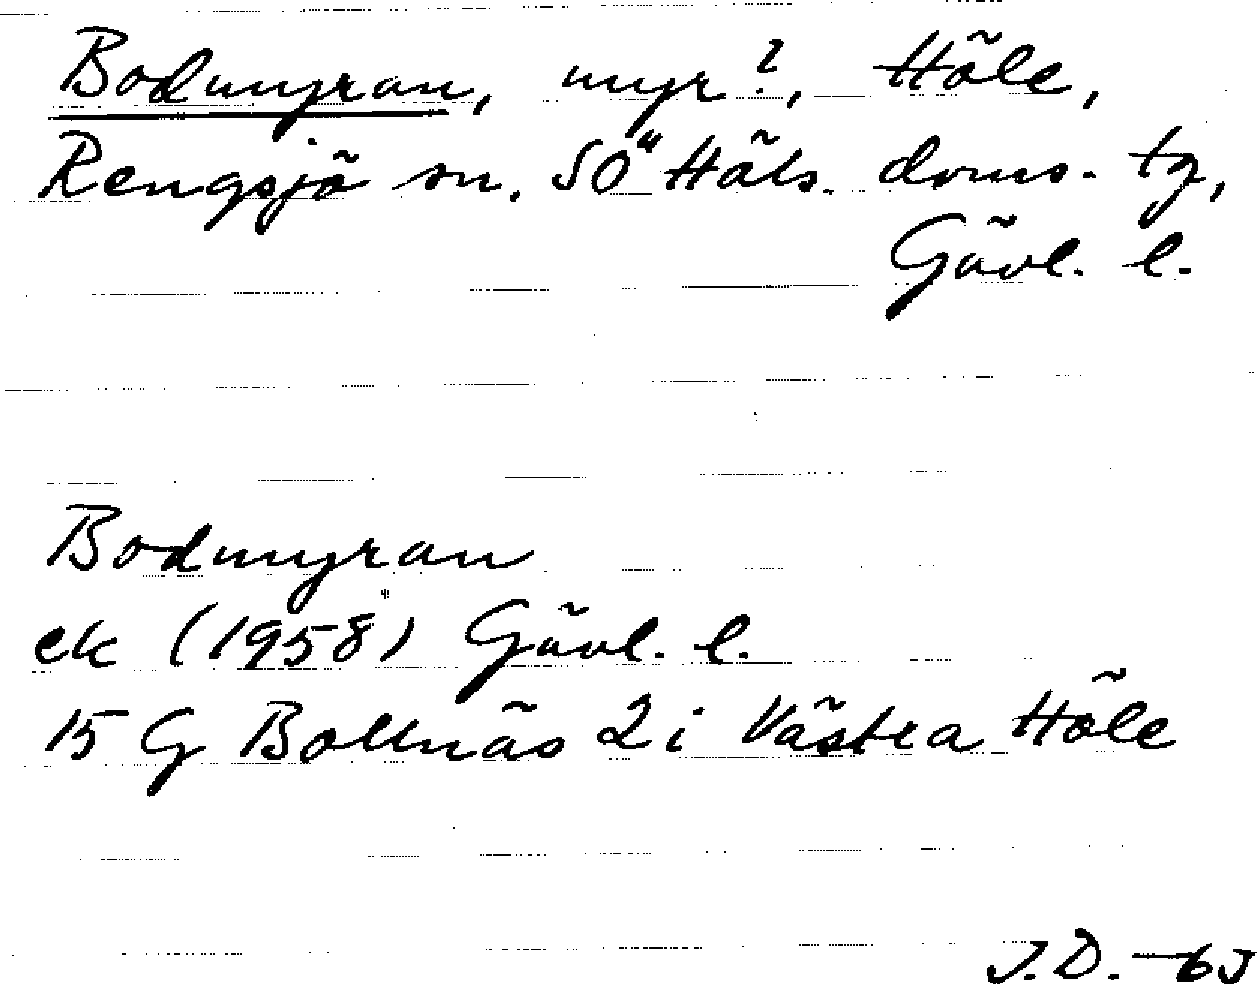 Bodmyran, myr?, Höle,
Rengsjö sn. SÖ Häls. doms. tg,
Gävl. l.
Bodmyran
ek (1958) Gävl. l.
15 G Bollnäs 2 i Västra Höle
J.D. -63